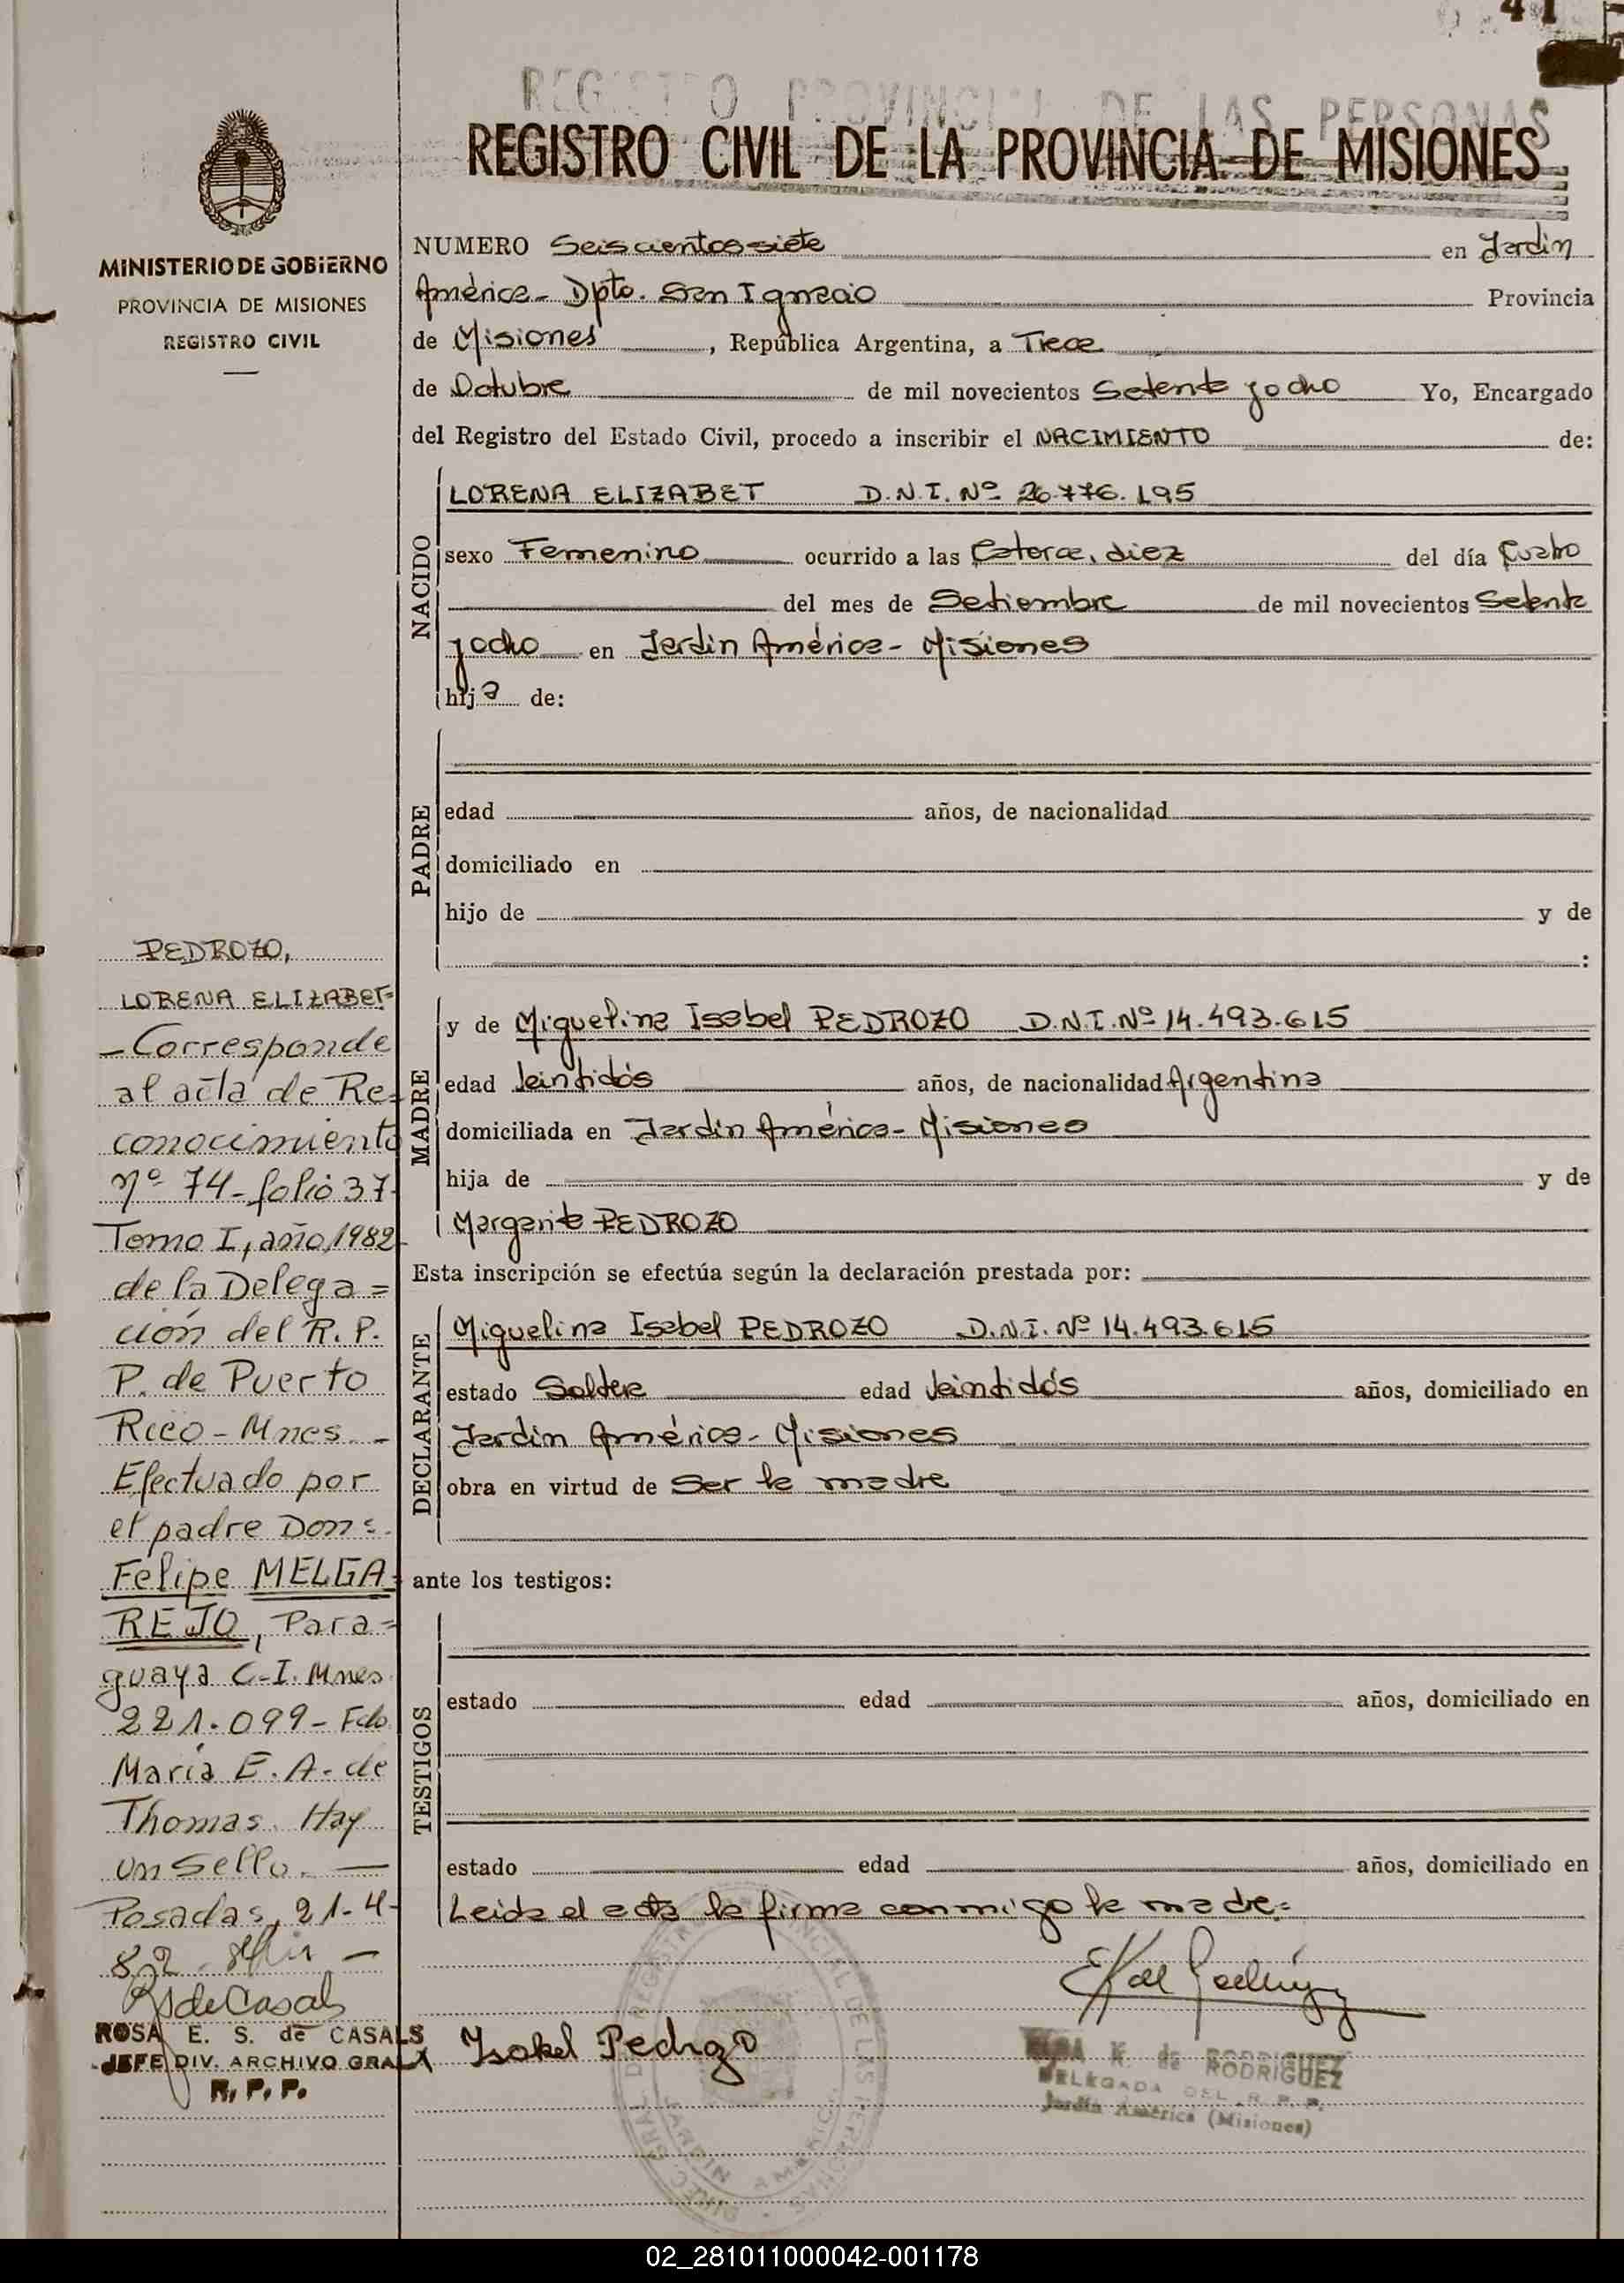 41
REGISTRO PROVINCIAL DE LAS PERSONAS
REGISTRO CIVIL DE LA PROVINCIA DE MISIONES
MINISTERIO DE GOBIERNO
PROVINCIA DE MISIONES
REGISTRO CIVIL
NUMERO Seiscientos siete en Jardin
América - Dpto. San Ignacio Provincia
de Misiones, República Argentina, a Trece
de Octubre de mil novecientos Setenta y ocho Yo, Encargado
del Registro del Estado Civil, procedo a inscribir el NACIMIENTO de:
NACIDO
LORENA ELIZABET D.N.I. Nº 26.776.195
sexo Femenino ocurrido a las Catorce, diez del día Cuatro
del mes de Setiembre de mil novecientos Setenta
y ocho en Jardin América - Misiones
hija de:
PADRE
edad años, de nacionalidad
domiciliado en
hijo de y de
:
MADRE
y de Miguelina Isabel PEDROZO D.N.I. Nº 14.493.615
edad Veintidós años, de nacionalidad Argentina
domiciliada en Jardin América - Misiones
hija de y de
Margarita PEDROZO
Esta inscripción se efectúa según la declaración prestada por:
DECLARANTE
Miguelina Isabel PEDROZO D.N.I. Nº 14.493.615
estado Soltera edad Veintidós años, domiciliado en
Jardin América - Misiones
obra en virtud de Ser la madre
ante los testigos:
TESTIGOS
estado edad años, domiciliado en
estado edad años, domiciliado en
Leida el acta la firma conmigo la madre.=
Isabel Pedrozo
ELBA K. de RODRIGUEZ
DELEGADA DEL R. P. P.
Jardín América (Misiones)
PEDROZO,
LORENA ELIZABET=
- Corresponde
al acta de Re=
conocimiento
nº 74 - folio 37-
Tomo I, año 1982-
de la Delega=
ción del R. P.
P. de Puerto
Rico - Mnes. -
Efectuado por
el padre Don=
Felipe MELGA=
REJO, Para=
guaya C.I. Mnes
221.099 - Fdo.
María E. A. de
Thomas. Hay
un sello. —
Posadas, 21-4-
82.
R S de Casals
ROSA E. S. de CASALS
JEFE DIV. ARCHIVO GRAL.
R. P. P.
02_281011000042-001178